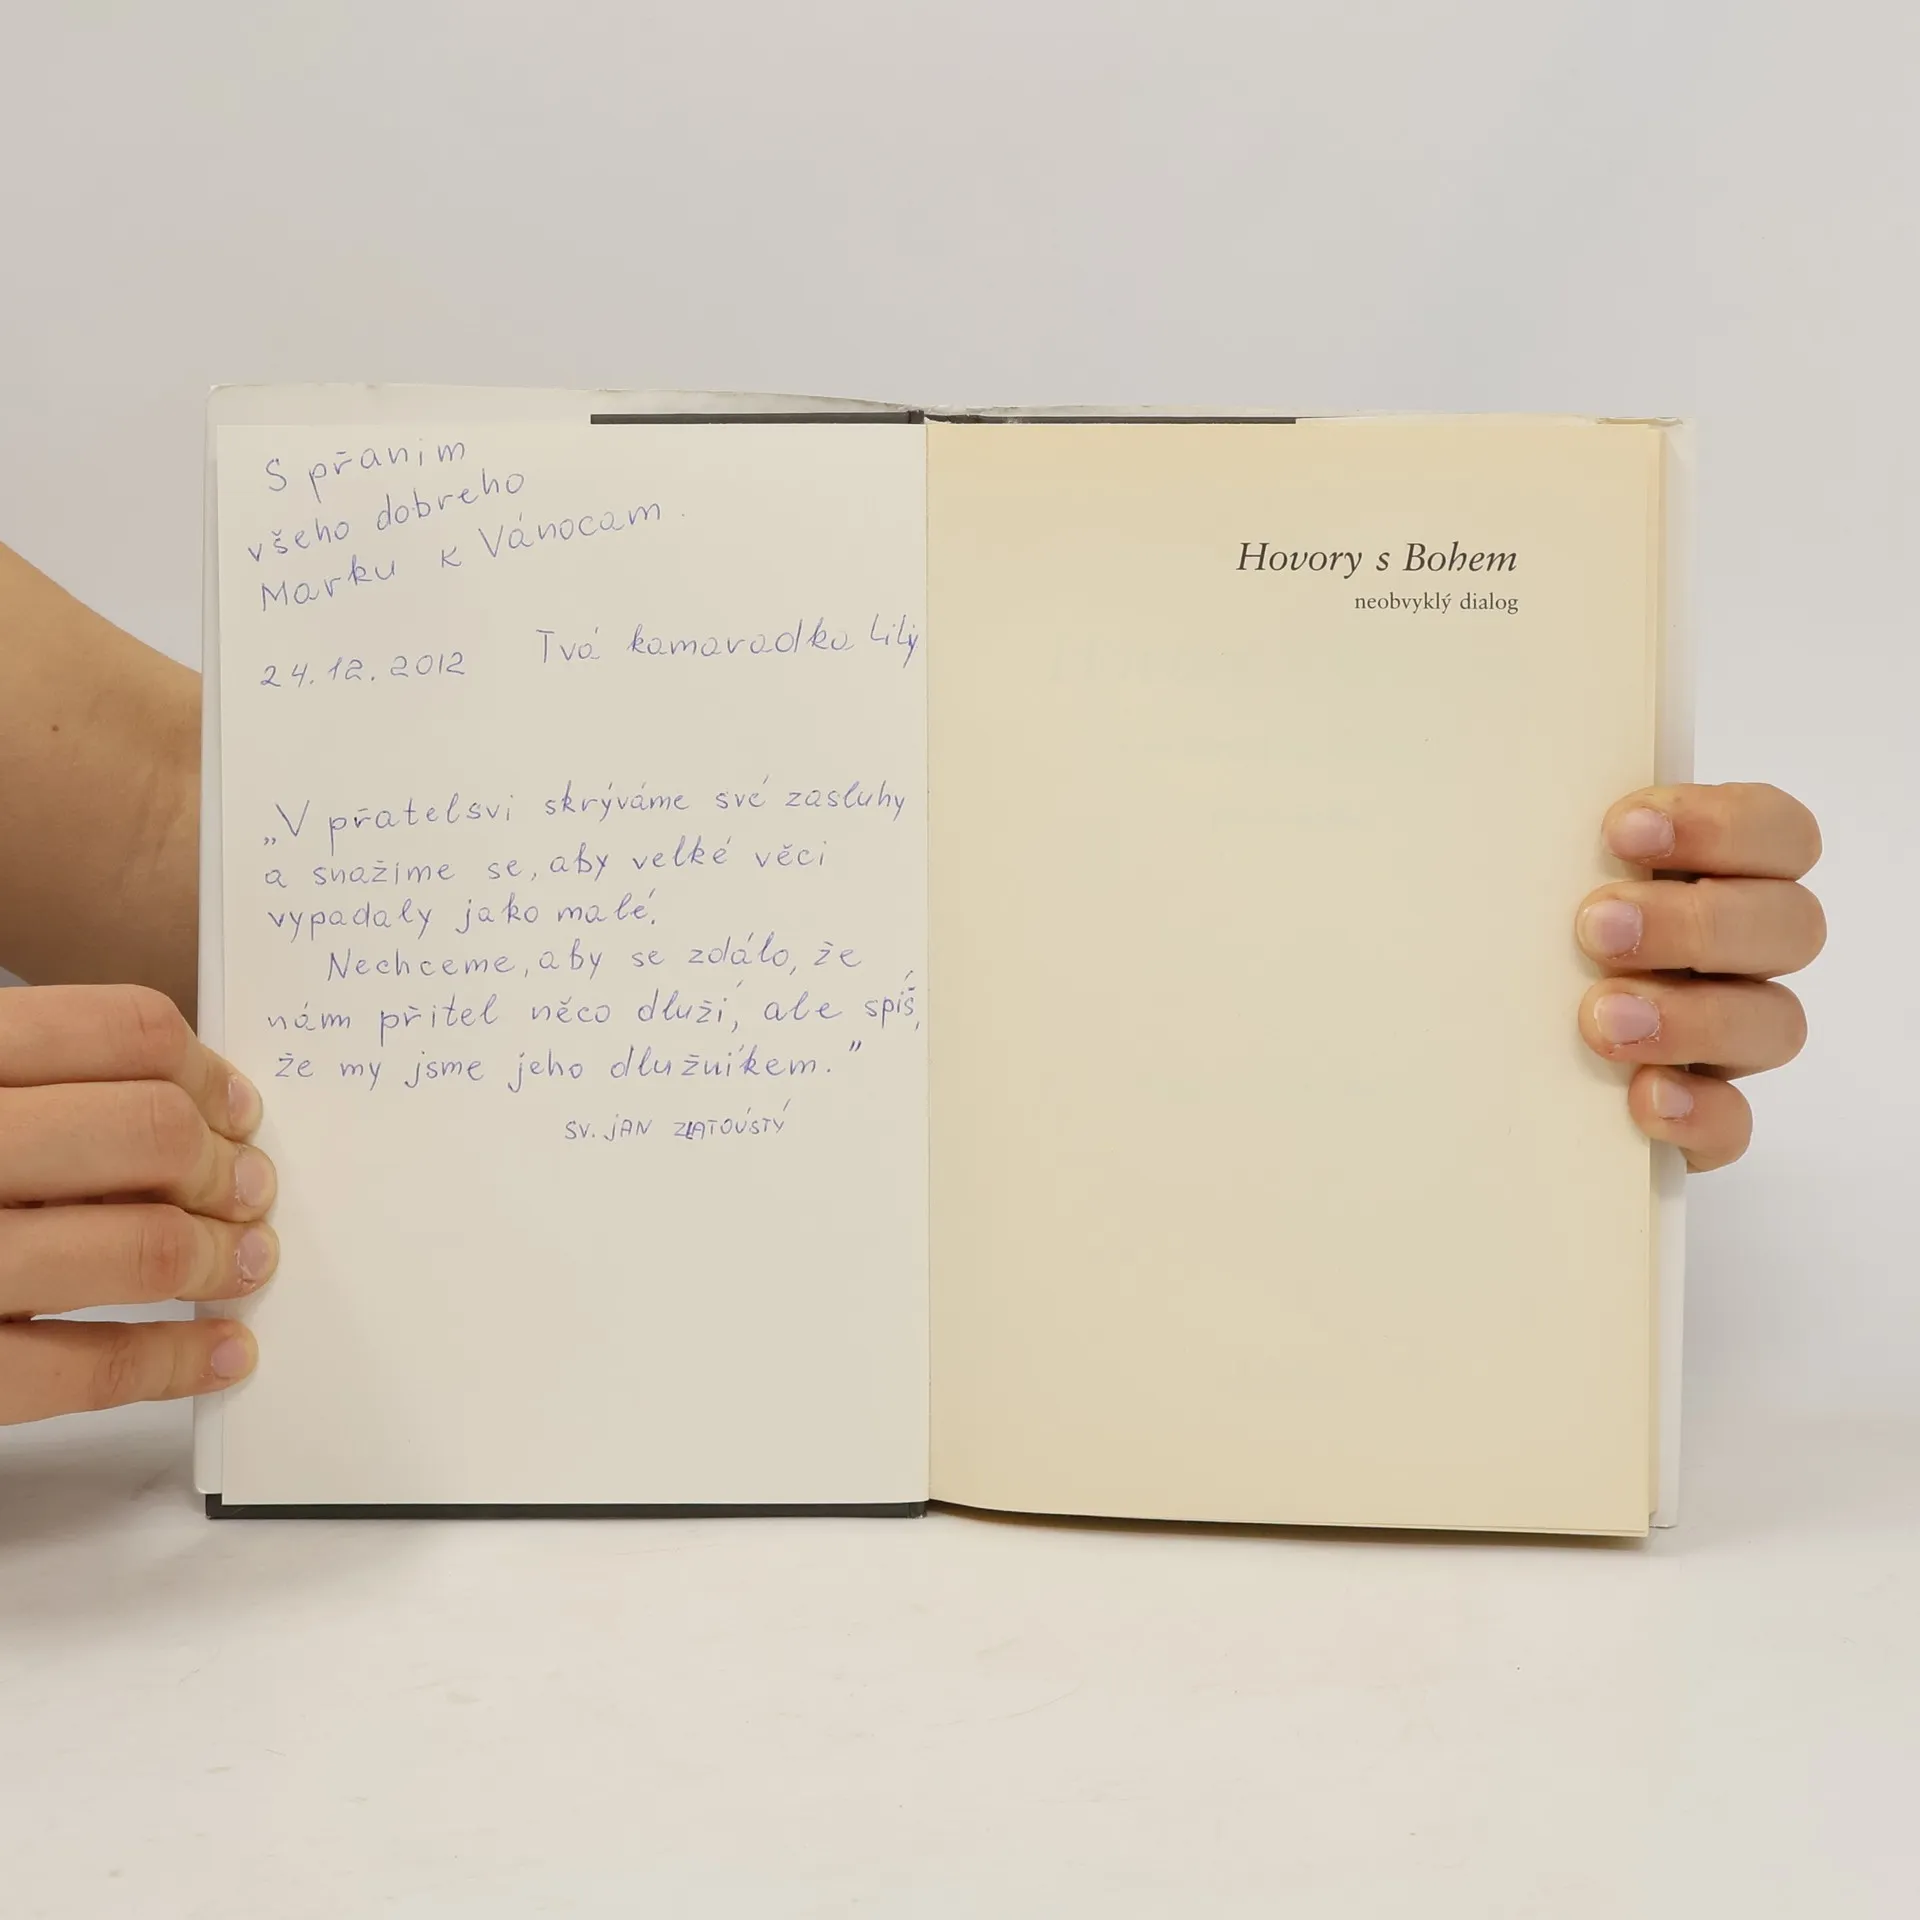 S přanim
všeho dobreho
Marku k Vánocam.
24.12.2012 Tvá kamaradka Lily
„V přatelsvi skrýváme své zasluhy
a snažíme se, aby velké věci
vypadaly jako malé.
Nechceme, aby se zdálo, že
nám přítel něco dluží, ale spíš,
že my jsme jeho dlužníkem."
SV. JAN ZLATOÚSTÝ
Hovory s Bohem
neobvyklý dialog